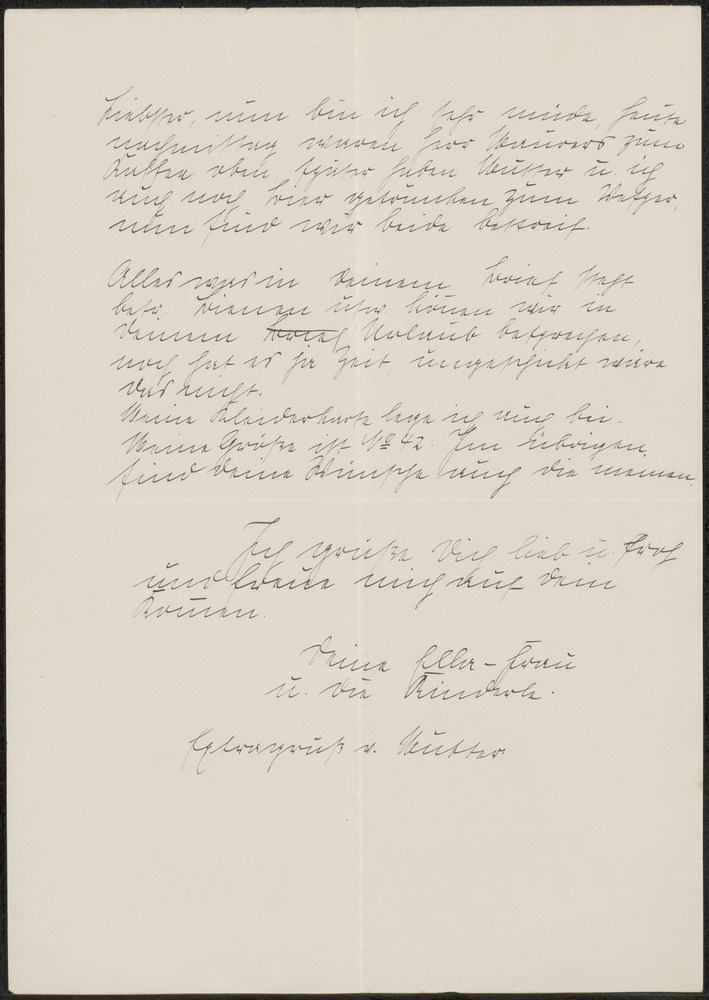 Liebster, nun bin ich sehr müde, heute
nachmittag waren Herr Maurers zum
Kaffee oben, später haben Mutter u. ich
auch noch Bier getrunken zum Vesper,
nun sind wir beide bettreif.
Alles was in Deinem Brief steht
betr. Bienen usw. können wir in
Deinem Brief Urlaub besprechen,
noch hat es ja Zeit, ungeschickt wäre
das nicht.
Meine Kleiderkarte lege ich auch bei.
Meine Größe ist No 42. Im übrigen
sind Deine Wünsche auch die meinen.
Ich grüße Dich lieb u. froh
und freue mich auf Dein
Kommen.
Deine Ella-Frau
u. die Kinderle.
Extragruß v. Mutter